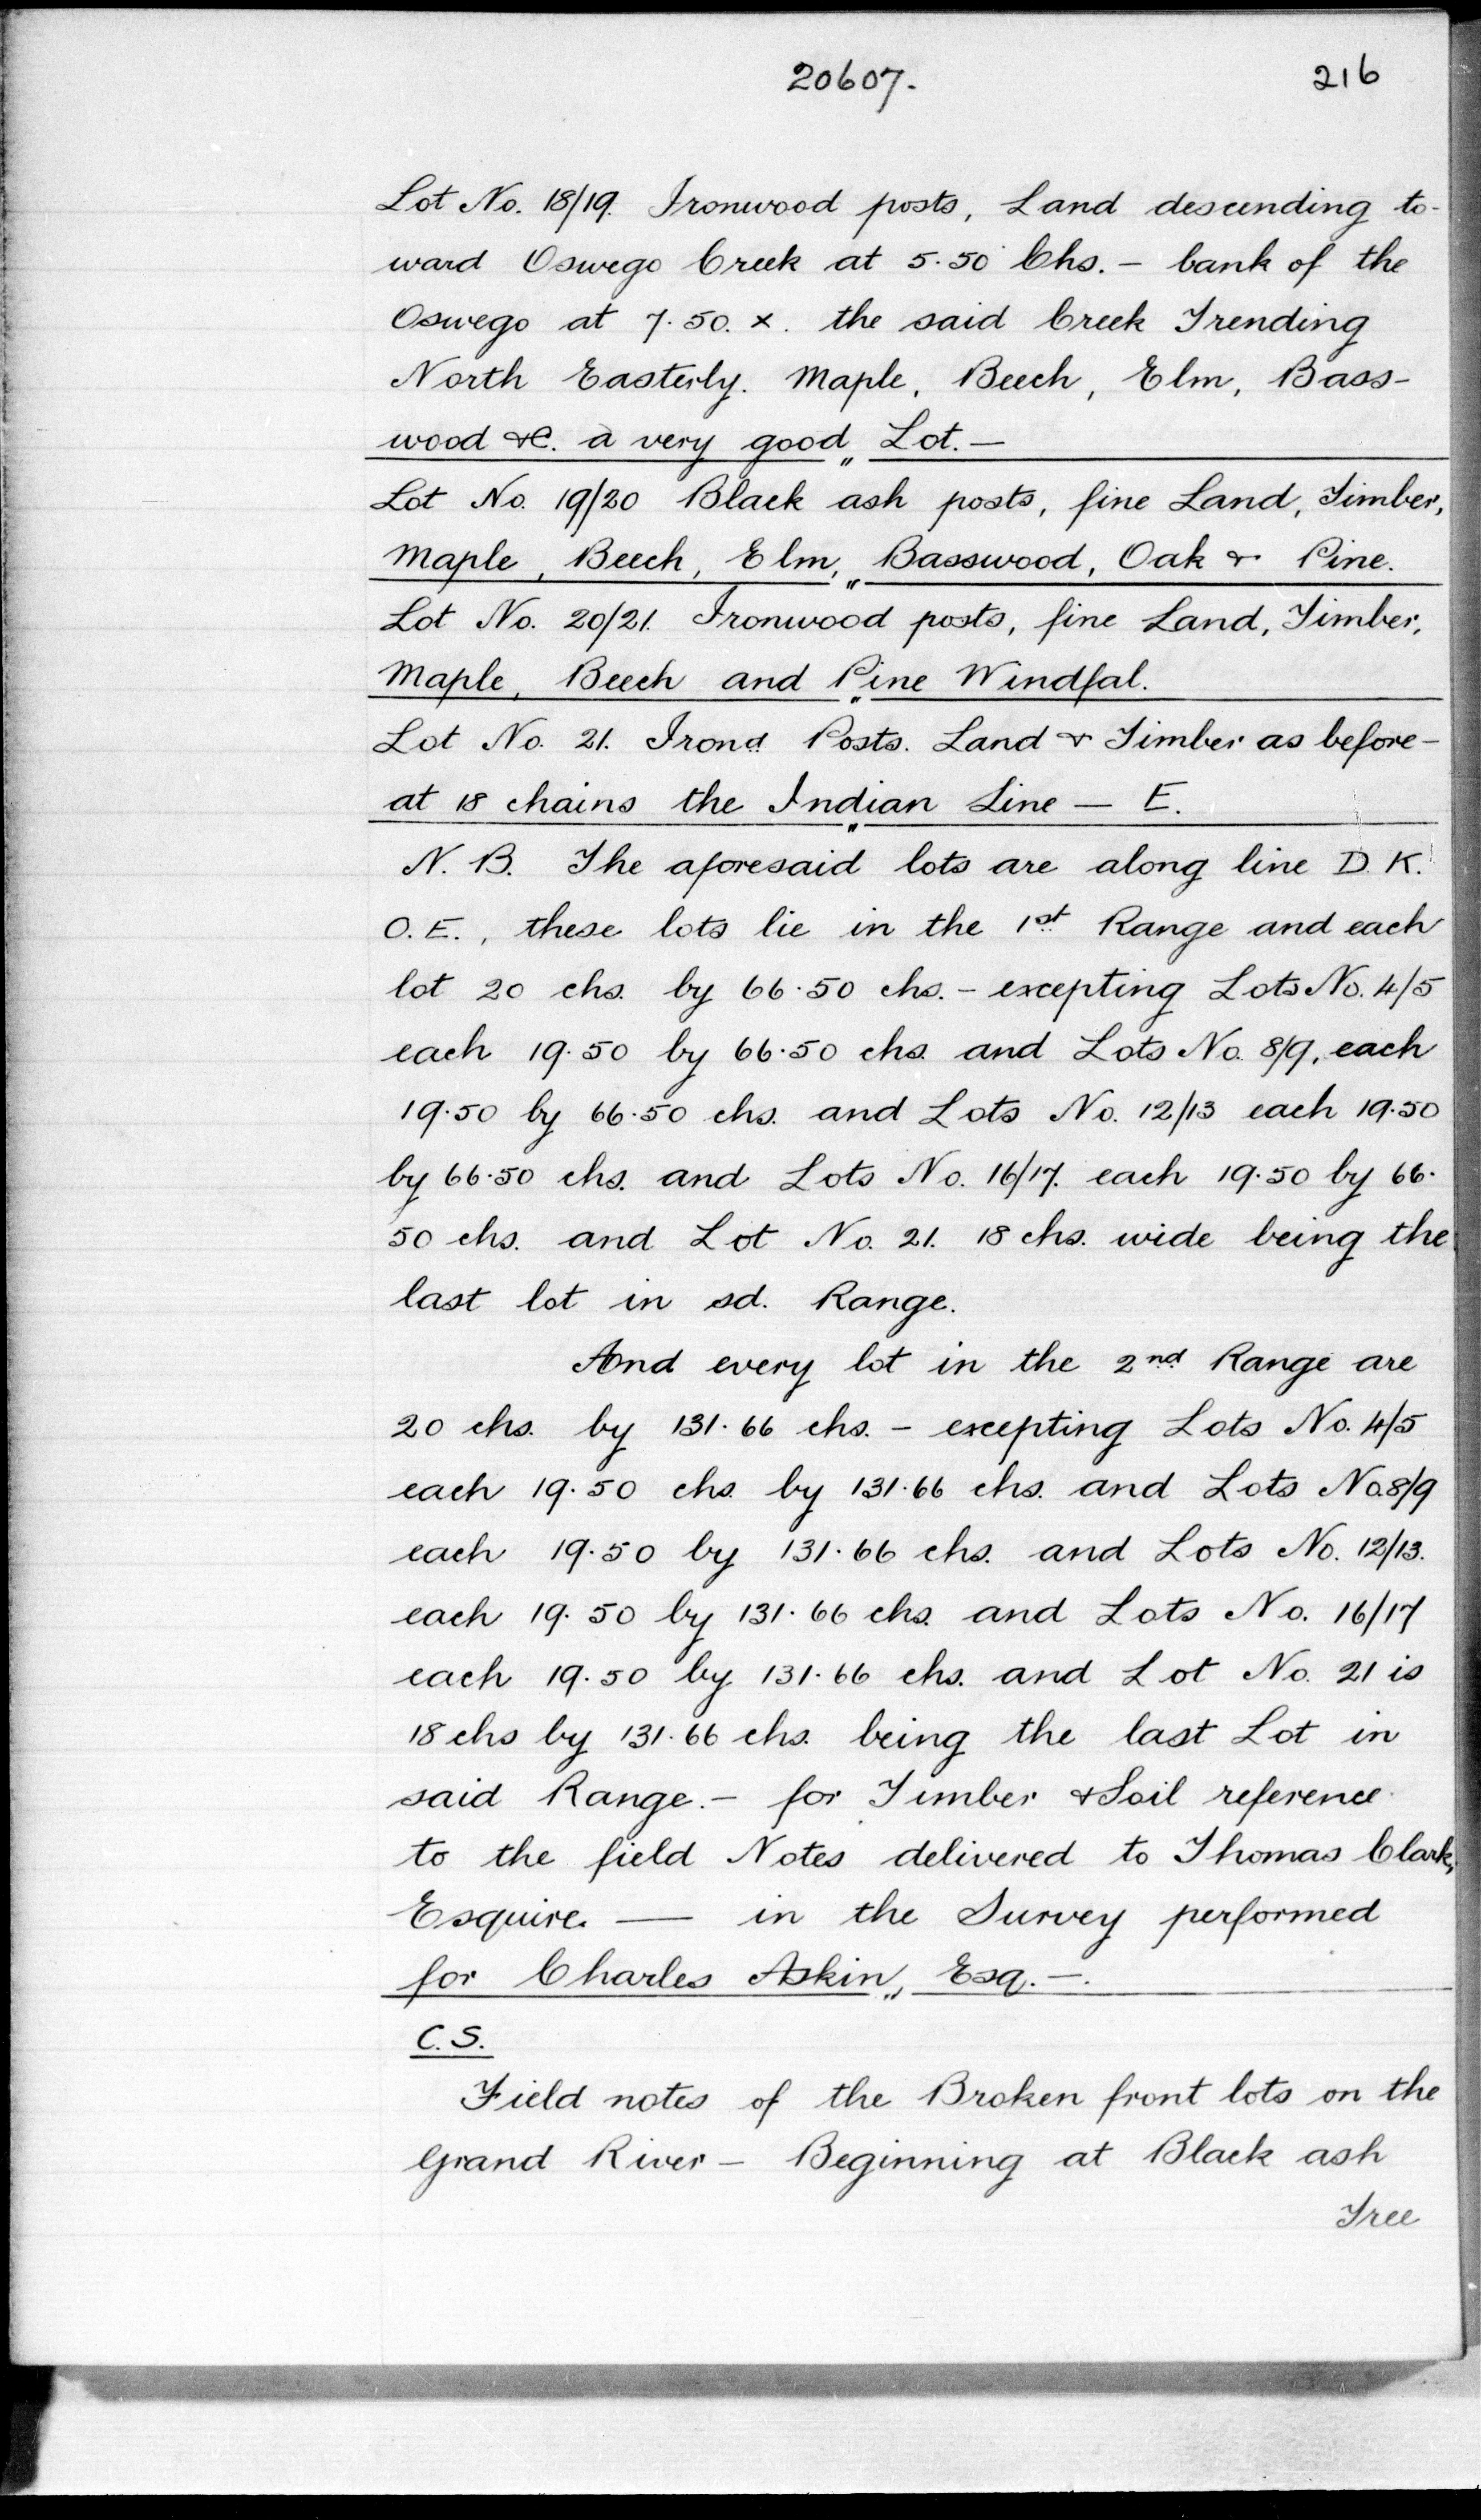 20607.
216
Lot No. 18/19. Ironwood posts, Land descending to-
ward Oswego Creek at 5.50 Chs. – bank of the
Oswego at 7.50. x. the said Creek Trending
North Easterly. Maple, Beech, Elm, Bass-
wood &c. a very good Lot. –
Lot No. 19/20 Black ash posts, fine Land, Timber,
Maple, Beech, Elm, Basswood, Oak & Pine.
Lot No. 20/21. Ironwood posts, fine Land, Timber,
Maple, Beech and Pine Windfal.
Lot No. 21. Irond Posts. Land & Timber as before –
at 18 chains the Indian Line – E.
N. B. The aforesaid lots are along line D. K.
O. E., these lots lie in the 1st Range and each
lot 20 chs. by 66.50 chs. – excepting Lots No. 4/5
each 19.50 by 66.50 chs. and Lots No. 8/9, each
19.50 by 66.50 chs. and Lots No. 12/13 each 19.50
by 66.50 chs. and Lots No. 16/17. each 19.50 by 66.
50 chs. and Lot No. 21. 18 chs. wide being the
last lot in sd. Range.
And every lot in the 2nd Range are
20 chs. by 131.66 chs. – excepting Lots No. 4/5
each 19.50 chs. by 131.66 chs. and Lots No. 8/9
each 19.50 by 131.66 chs. and Lots No. 12/13.
each 19.50 by 131.66 chs. and Lots No. 16/17
each 19.50 by 131.66 chs. and Lot No. 21 is
18 chs by 131.66 chs. being the last Lot in
said Range. – for Timber & Soil reference
to the field Notes delivered to Thomas Clark,
Esquire. — in the Survey performed
for Charles Askin, Esq. –.
C. S.
Field notes of the Broken front lots on the
Grand River – Beginning at Black ash
Tree